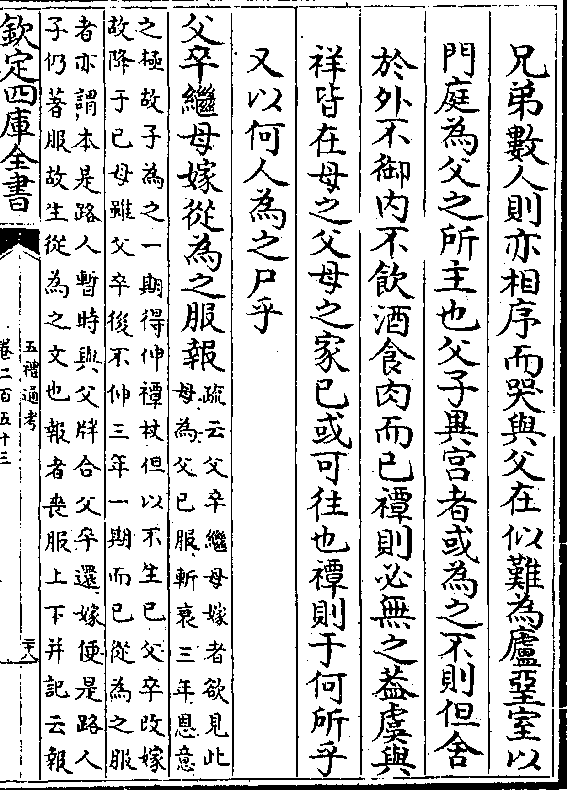 兄弟數人則亦相序而哭與父在似難為廬堊室以
門庭為父之所主也父子異宮者或為之不則但舍
於外不御内不飲酒食肉而已禫則必無之葢虞與
祥皆在母之父母之家已或可往也禫則于何所乎
又以何人為之尸乎
父卒繼母嫁從為之服報
疏云父卒繼母嫁者欲見此
母為父已服斬衰三年恩意
之極故子為之一期得伸禫杖但以不生已父卒改嫁
故降于已母雖父卒後不伸三年一期而已從為之服
者亦謂本是路人暫時與父牉合父卒還嫁便是路人
子仍著服故生從為之文也報者喪服上下并記云報
欽定四庫全書
五禮通考
卷二百五十三